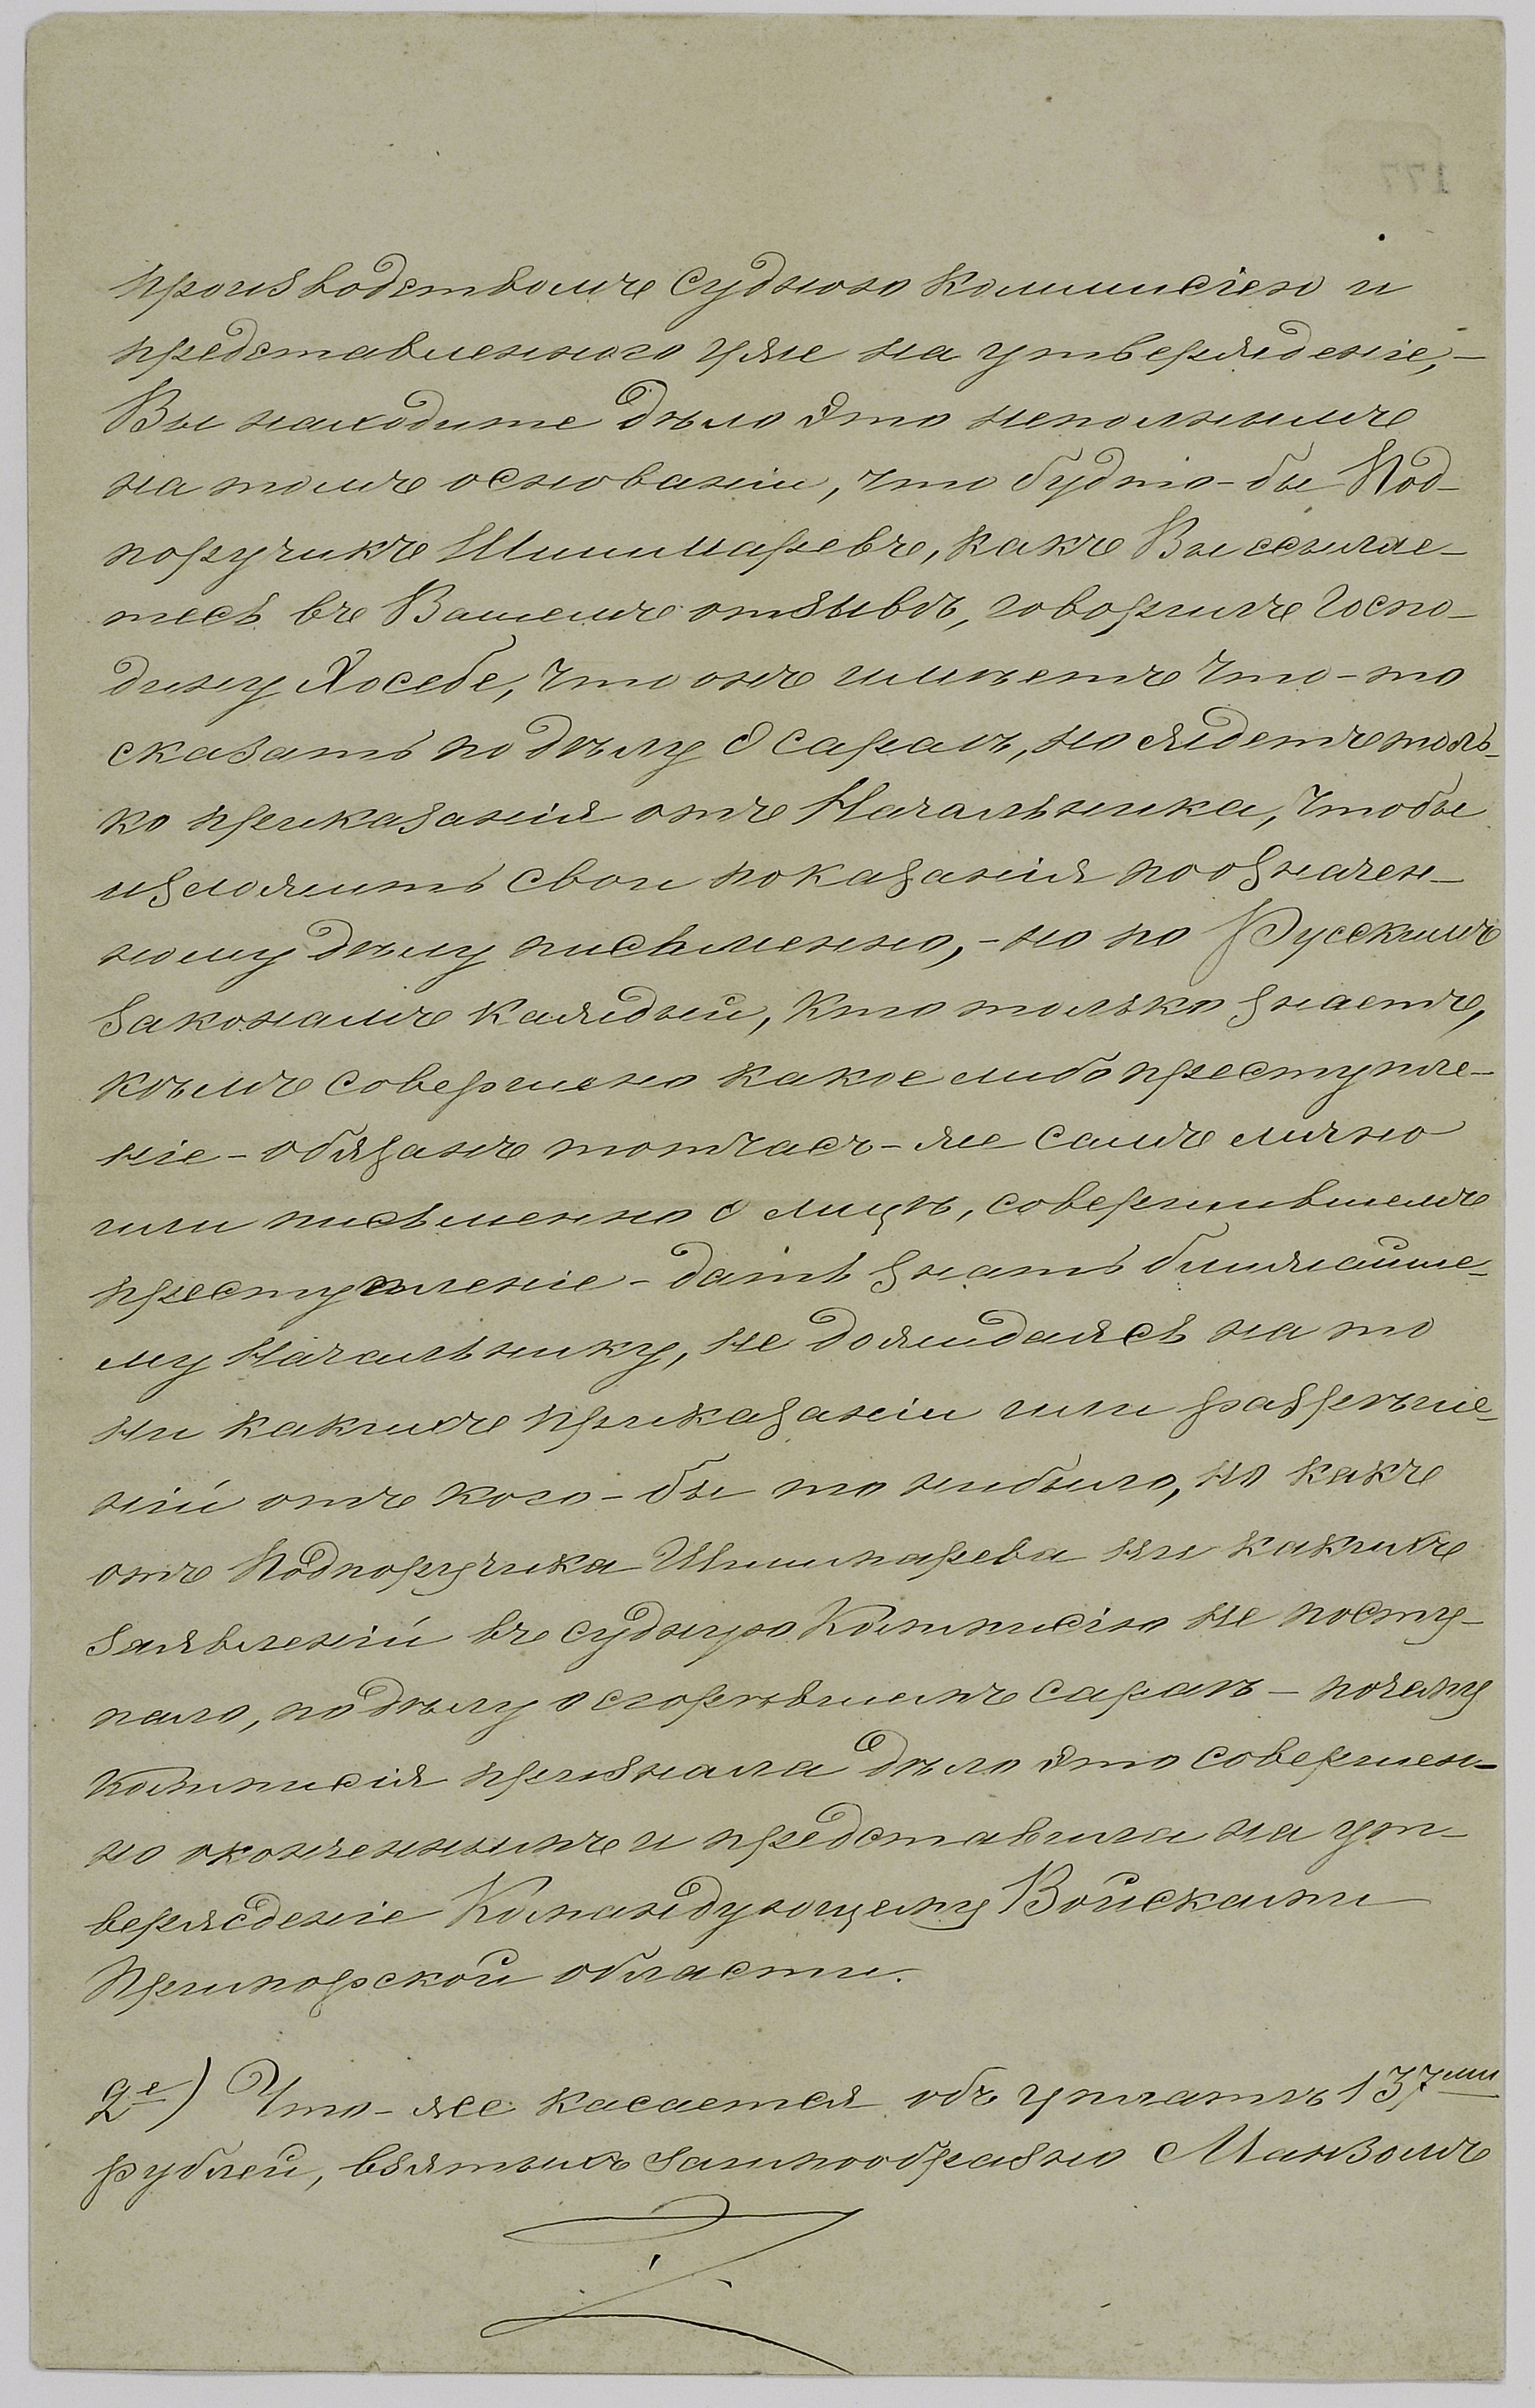 производствомъ судною Коммисіею и
представленного уже на утвержденіе,-
Вы находите дѣло это неполнымъ
на томъ основаніи, что будто-бы Под-
поручикъ Шишмаревъ, какъ Вы ссылае-
тесь въ Вашемъ отзывѣ, говорилъ Госпо-
дину Хосебе, что онъ имѣетъ что-то
сказать по дѣлу о сараѣ, но ждетъ толь-
ко приказанія отъ Начальника, чтобы
изложить свои показанія по означен-
ному дѣлу письменно,- но по Русскимъ
законамъ каждый, кто только знаетъ,
кѣмъ совершено какое либо преступле-
ніе - обязанъ тотчасъ-же самъ лично
или письменно о лицѣ, совершившемъ
преступленіе - дать знать ближайше-
му Начальнику, не дожидаясь на то
ни какихъ приказаніи или разрѣше-
ній отъ кого-бы то нибыло, но какъ
отъ Подпоручика Шишмарева ни какихъ
заявленій въ судную Коммисію не посту-
пало, по дѣлу о сгорѣвшемъ сараѣ - почему
Коммисія признала дѣло это совершен-
но оконченнымъ и представила на ут-
вержденіе Командующему Войсками
Приморской области.
2е) Что-же касается объ уплатѣ 137ми
рублей, взятыхъ заимообразно Манзомъ